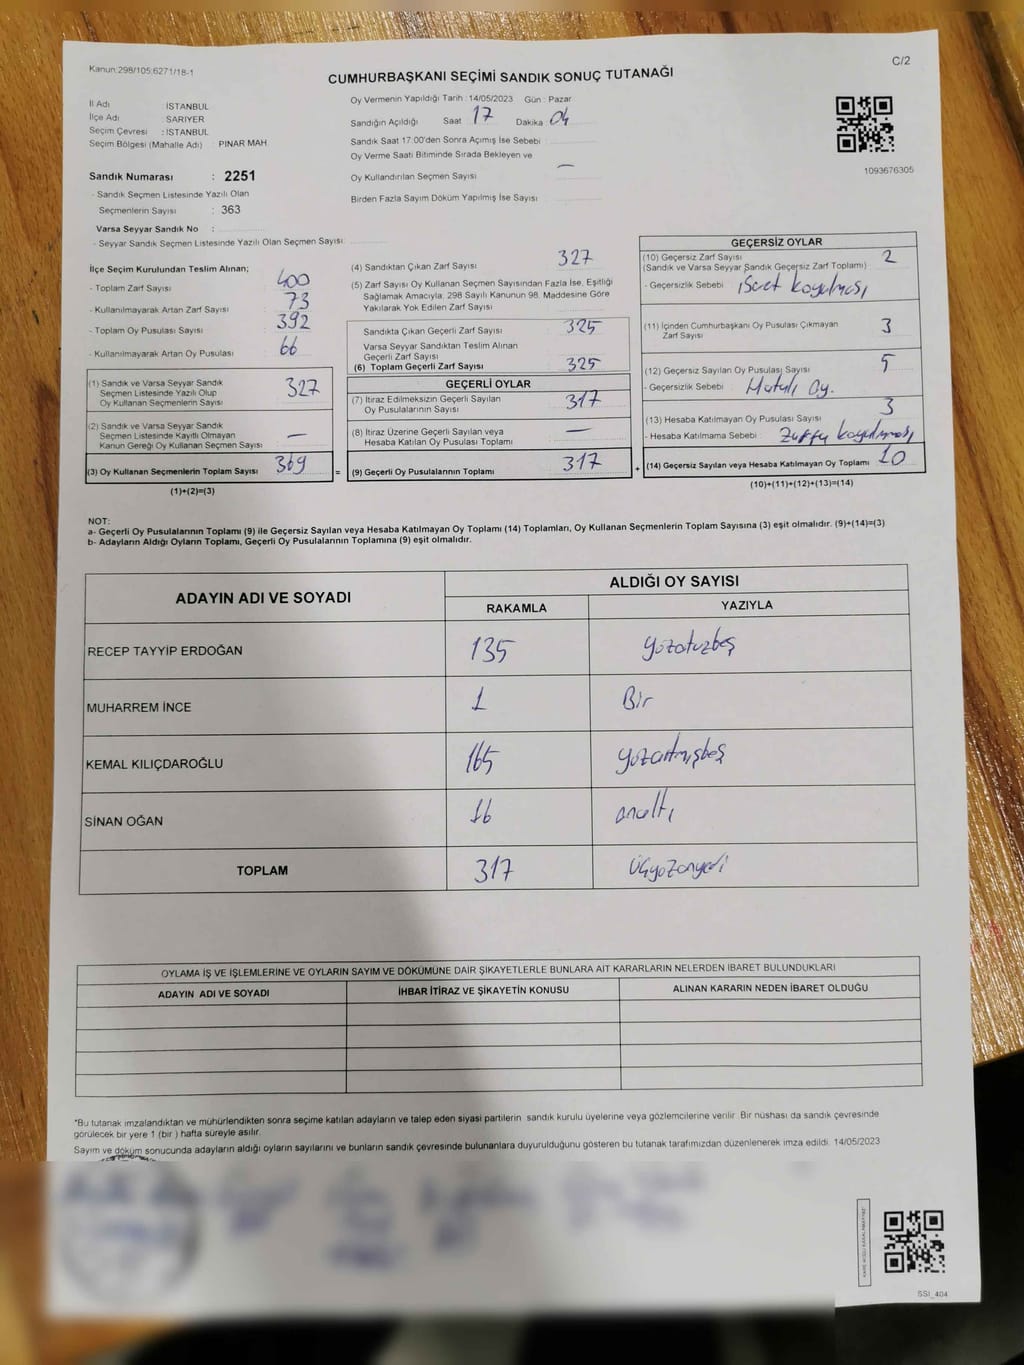 Kanun:298/105;6271/18-1
C/2
CUMHURBAŞKANI SEÇİMİ SANDIK SONUÇ TUTANAĞI
İl Adı : İSTANBUL
İlçe Adı : SARIYER
Seçim Çevresi : İSTANBUL
Seçim Bölgesi (Mahalle Adı) : PINAR MAH
Sandık Numarası : 2251
- Sandık Seçmen Listesinde Yazılı Olan
Seçmenlerin Sayısı : 363
Varsa Seyyar Sandık No :
- Seyyar Sandık Seçmen Listesinde Yazılı Olan Seçmen Sayısı:
Oy Vermenin Yapıldığı Tarih : 14/05/2023 Gün : Pazar
Sandığın Açıldığı Saat 17 Dakika 04
Sandık Saat 17:00'den Sonra Açımış İse Sebebi :
Oy Verme Saati Bitiminde Sırada Bekleyen ve
Oy Kullandırılan Seçmen Sayısı : —
Birden Fazla Sayım Döküm Yapılmış İse Sayısı :
1093676305
İlçe Seçim Kurulundan Teslim Alınan;
- Toplam Zarf Sayısı : 400
- Kullanılmayarak Artan Zarf Sayısı : 73
- Toplam Oy Pusulası Sayısı : 392
- Kullanılmayarak Artan Oy Pusulası : 66
(1) Sandık ve Varsa Seyyar Sandık
Seçmen Listesinde Yazılı Olup
Oy Kullanan Seçmenlerin Sayısı 327
(2) Sandık ve Varsa Seyyar Sandık
Seçmen Listesinde Kayıtlı Olmayan
Kanun Gereği Oy Kullanan Seçmen Sayısı —
(3) Oy Kullanan Seçmenlerin Toplam Sayısı 369
(1)+(2)=(3)
(4) Sandıktan Çıkan Zarf Sayısı : 327
(5) Zarf Sayısı Oy Kullanan Seçmen Sayısından Fazla İse, Eşitliği
Sağlamak Amacıyla, 298 Sayılı Kanunun 98. Maddesine Göre
Yakılarak Yok Edilen Zarf Sayısı :
Sandıkta Çıkan Geçerli Zarf Sayısı : 325
Varsa Seyyar Sandıktan Teslim Alınan
Geçerli Zarf Sayısı :
(6) Toplam Geçerli Zarf Sayısı : 325
GEÇERLİ OYLAR
(7) İtiraz Edilmeksizin Geçerli Sayılan
Oy Pusulalarının Sayısı : 317
(8) İtiraz Üzerine Geçerli Sayılan veya
Hesaba Katılan Oy Pusulası Toplamı : —
= (9) Geçerli Oy Pusulalarının Toplamı : 317 +
GEÇERSİZ OYLAR
(10) Geçersiz Zarf Sayısı : 2
(Sandık ve Varsa Seyyar Sandık Geçersiz Zarf Toplamı)
- Geçersizlik Sebebi : işaret koyulması
(11) İçinden Cumhurbaşkanı Oy Pusulası Çıkmayan
Zarf Sayısı : 3
(12) Geçersiz Sayılan Oy Pusulası Sayısı : 5
- Geçersizlik Sebebi : Hatalı Oy.
(13) Hesaba Katılmayan Oy Pusulası Sayısı : 3
- Hesaba Katılmama Sebebi : koyulması
(14) Geçersiz Sayılan veya Hesaba Katılmayan Oy Toplamı : 10
(10)+(11)+(12)+(13)=(14)
NOT:
a- Geçerli Oy Pusulalarının Toplamı (9) ile Geçersiz Sayılan veya Hesaba Katılmayan Oy Toplamı (14) Toplamları, Oy Kullanan Seçmenlerin Toplam Sayısına (3) eşit olmalıdır. (9)+(14)=(3)
b- Adayların Aldığı Oyların Toplamı, Geçerli Oy Pusulalarının Toplamına (9) eşit olmalıdır.
ADAYIN ADI VE SOYADI
ALDIĞI OY SAYISI
RAKAMLA YAZIYLA
RECEP TAYYİP ERDOĞAN 135 yüzotuzbeş
MUHARREM İNCE 1 Bir
KEMAL KILIÇDAROĞLU 165 yüzaltmışbeş
SİNAN OĞAN 16 onaltı
TOPLAM 317 üçyüzonyedi
OYLAMA İŞ VE İŞLEMLERİNE VE OYLARIN SAYIM VE DÖKÜMÜNE DAİR ŞİKAYETLERLE BUNLARA AİT KARARLARIN NELERDEN İBARET BULUNDUKLARI
ADAYIN ADI VE SOYADI İHBAR İTİRAZ VE ŞİKAYETİN KONUSU ALINAN KARARIN NEDEN İBARET OLDUĞU
*Bu tutanak imzalandıktan ve mühürlendikten sonra seçime katılan adayların ve talep eden siyasi partilerin sandık kurulu üyelerine veya gözlemcilerine verilir. Bir nüshası da sandık çevresinde
görülecek bir yere 1 (bir ) hafta süreyle asılır.
Sayım ve döküm sonucunda adayların aldığı oyların sayılarını ve bunların sandık çevresinde bulunanlara duyurulduğunu gösteren bu tutanak tarafımızdan düzenlenerek imza edildi. 14/05/2023
SSI_404